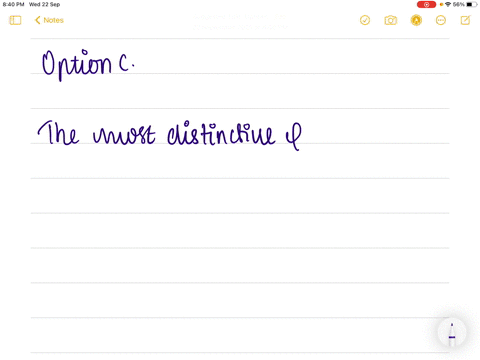 8:40 PM Wed 22 Sep
56%
Notes
Option C.
The most distinctive